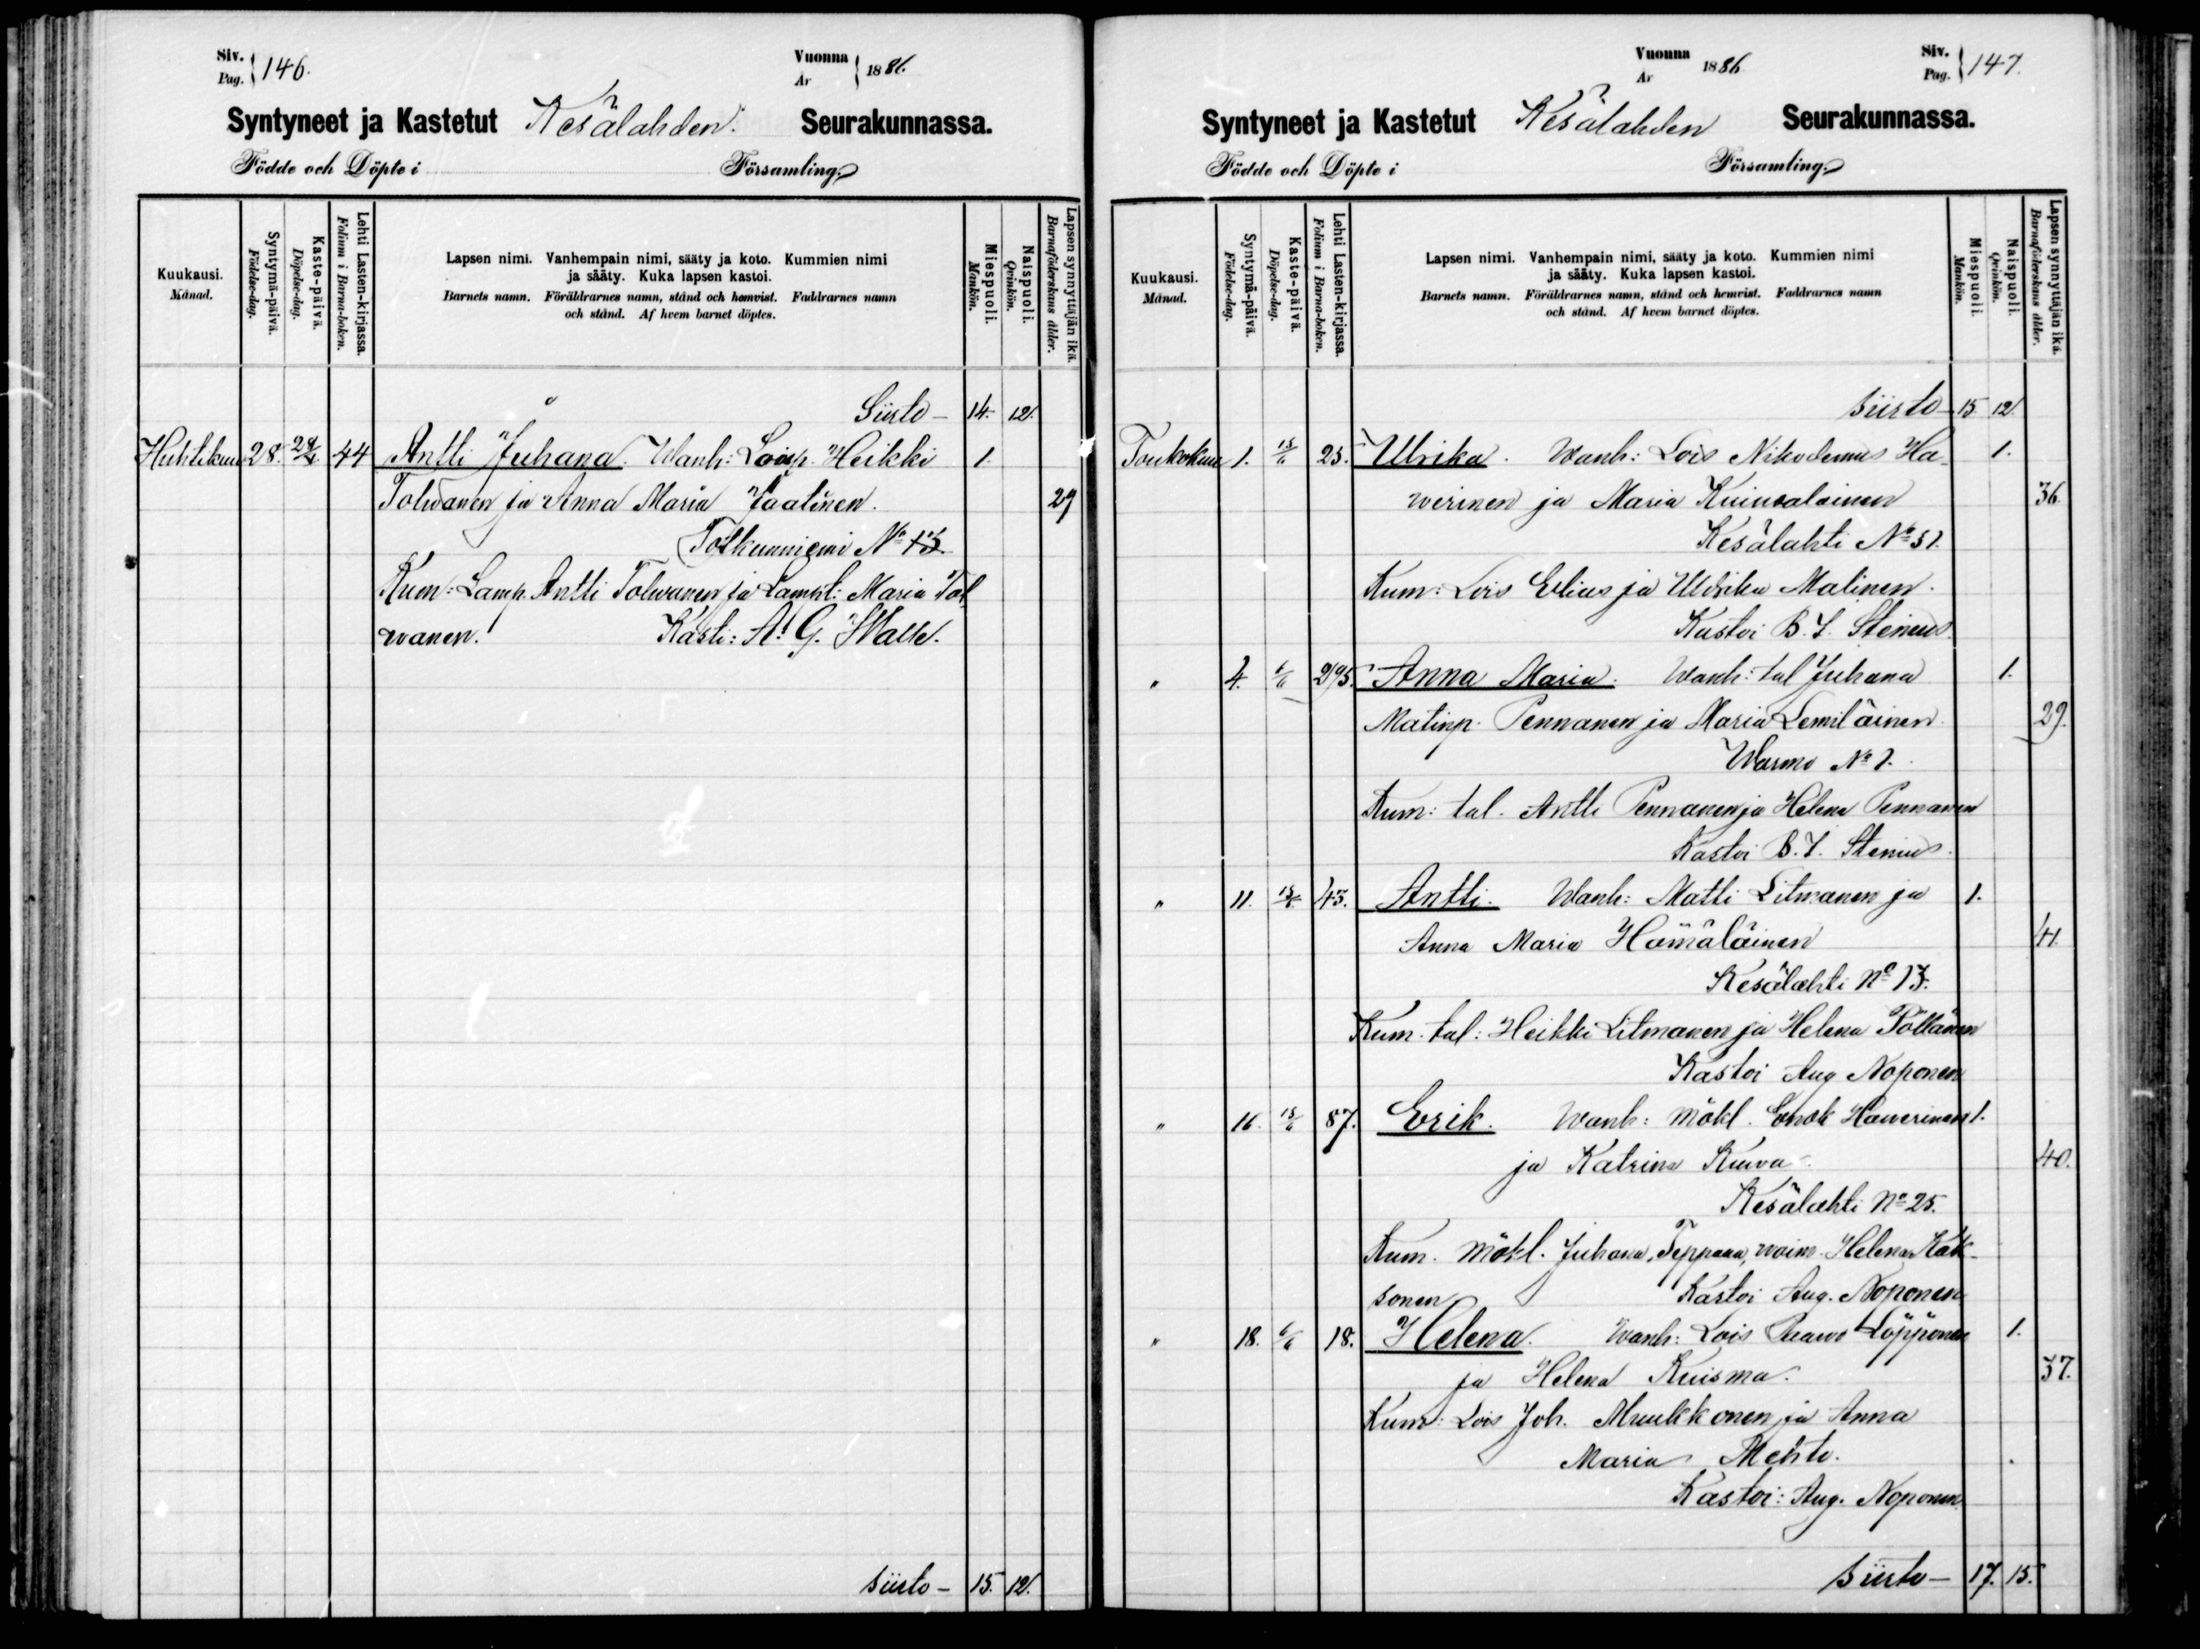 Siv.
Pag. 146.
Vuonna
År 1886.
Syntyneet ja Kastetut Kesälahden. Seurakunnassa.
Födde och Döpte i Församling.
Kuukausi.
Månad.
Syntymä-päivä.
Födelse-dag.
Kaste-päivä.
Döpelse-dag.
Lehti Lasten-kirjassa.
Folium i Barna-boken.
Lapsen nimi. Vanhempain nimi, sääty ja koto. Kummien nimi
ja sääty. Kuka lapsen kastoi.
Barnets namn. Föräldrarnes namn, stånd och hemvist. Faddrarnes namn
och stånd. Af hvem barnet döptes.
Miespuoli.
Mankön.
Naispuoli.
Qvinkön.
Lapsen synnyttäjän ikä.
Barnaföderskans ålder.
Siirto – 14. 12.
Huhtikuu 28. 44 Antti Juhana. Wanh: Loisp. Heikki 1.
Tolwanen ja Anna Maria Jaatinen. 29
Totkunniemi No 13
Kum: Lamp. Antti Tolwanen ja Lampt: Maria Tol
wanen. Kasti: A. G. Walle.
Siirto – 15. 12.
Vuonna
År 1886
Siv.
Pag. 147.
Syntyneet ja Kastetut Kesälahden Seurakunnassa.
Födde och Döpte i Församling.
Kuukausi.
Månad.
Syntymä-päivä.
Födelse-dag.
Kaste-päivä.
Döpelse-dag.
Lehti Lasten-kirjassa.
Folium i Barna-boken.
Lapsen nimi. Vanhempain nimi, sääty ja koto. Kummien nimi
ja sääty. Kuka lapsen kastoi.
Barnets namn. Föräldrarnes namn, stånd och hemvist. Faddrarnes namn
och stånd. Af hvem barnet döptes.
Miespuoli.
Mankön.
Naispuoli.
Qvinkön.
Lapsen synnyttäjän ikä.
Barnaföderskans ålder.
Siirto – 15 12.
Toukokuu 1. 15/6 25. Ulrika. Wanh: Lois Nikodemus Ha- 1.
werinen ja Maria Kuiwalainen 36
Kesälahti No 51.
Kum: Lois Elias ja Ulrika Malinen.
Kastoi B. I. Stenius.
" 4. 6/6 295. Anna Maria. Wanh: tal Juhana 1.
Matinp. Pennanen ja Maria Lemiläinen 29.
Warmo No 1.
Kum: tal. Antti Pennanen ja Helena Pennanen
Kastoi B. I. Stenius.
" 11. 15/6 43. Antti. Wanh: Matti Litmanen ja 1.
Anna Maria Hämäläinen 41.
Kesälahti No 13.
Kum. tal: Heikki Litmanen ja Helena Pöllänen
Kastoi Aug Noponen
" 16. 15/6 87. Erik. Wanh: Mökl. Enok Hawerinen 1.
ja Katrina Kuwa 40.
Kesälahti No 25.
Kum. Mökl. Juhana Teppana, waim. Helena Kak-
sonen Kastoi Aug. Noponen
" 18. 6/6 18. Helena. Wanh: Lois Paawo Löppönen 1.
ja Helena Kuisma. 37.
Kum: Lois Joh. Muukkonen ja Anna
Maria Mehto.
Kastoi: Aug. Noponen.
Siirto – 17. 15.